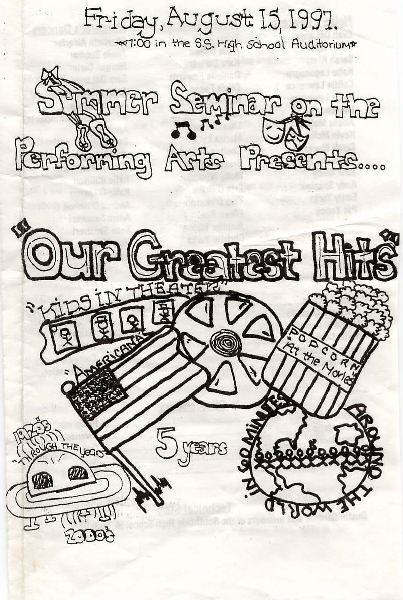 Friday, August 15, 1997.
*7:00 in the S.S. High School Auditorium*
Summer Seminar on the
Performing Arts Presents....
"Our Greatest Hits"
"KIDS IN THEATRE"
"AMERICANA"
POPCORN
"At the Movies"
5 years
"THROUGH THE YEARS"
2000's
AROUND THE WORLD in 60 MINUTES